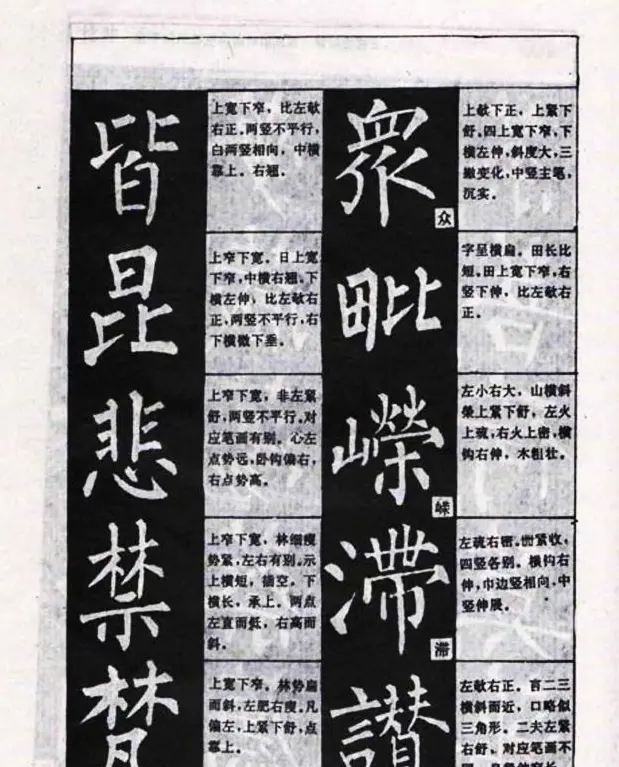 皆
上宽下窄，比左欹
右正。两竖不平行，
白两竖相向，中横
靠上。右翘。
衆
众
上欹下正，上紧下
舒。四上宽下窄，下
横左伸，斜度大，三
撇变化，中竖主笔，
沉实。
昆
上窄下宽。日上宽
下窄，中横右翘。下
横左伸，比左欹右
正，两竖不平行，右
下横微下垂。
毗
字呈横扁。田长比
短。田上宽下窄，右
竖下伸，比左欹右
正。
悲
上窄下宽，非左紧
舒，两竖不平行。对
应笔画有别。心左
点势远，卧钩偏右，
右点势高。
嶸
嵘
左小右大，山横斜
荣上紧下舒，左火
上疏，右火上密，横
钩右伸，木粗壮。
禁
上窄下宽，林细瘦
势紧，左右有别。示
上横短，插空。下
横长，承上。两点
左直而低，右高而
斜。
滯
滞
左疏右密。紧收，
四竖各别。横钩右
伸，巾边竖相向，中
竖伸展。
梵
上宽下窄。林势扁
而斜，左肥右瘦。凡
偏左，上紧下舒，点
靠上。
讃
左欹右正。言二三
横斜而近，口略似
三角形。二夫左紧
右舒，对应笔画不